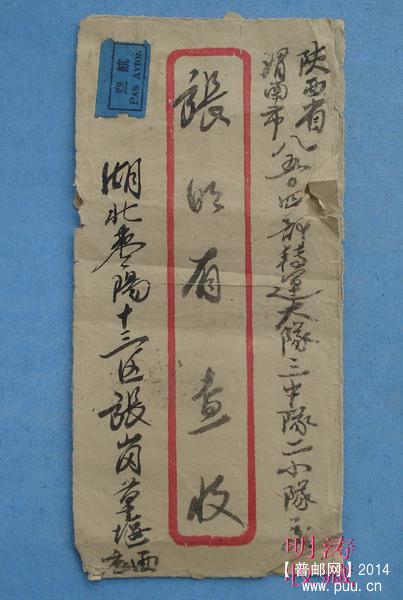 陕西省
渭南市八五〇四部转运大隊三中隊二小隊
張明有查收
湖北枣陽十三区張岗草堰
航空
PAR AVION
明涛
收藏
【普邮网】2014
www.puu.cn